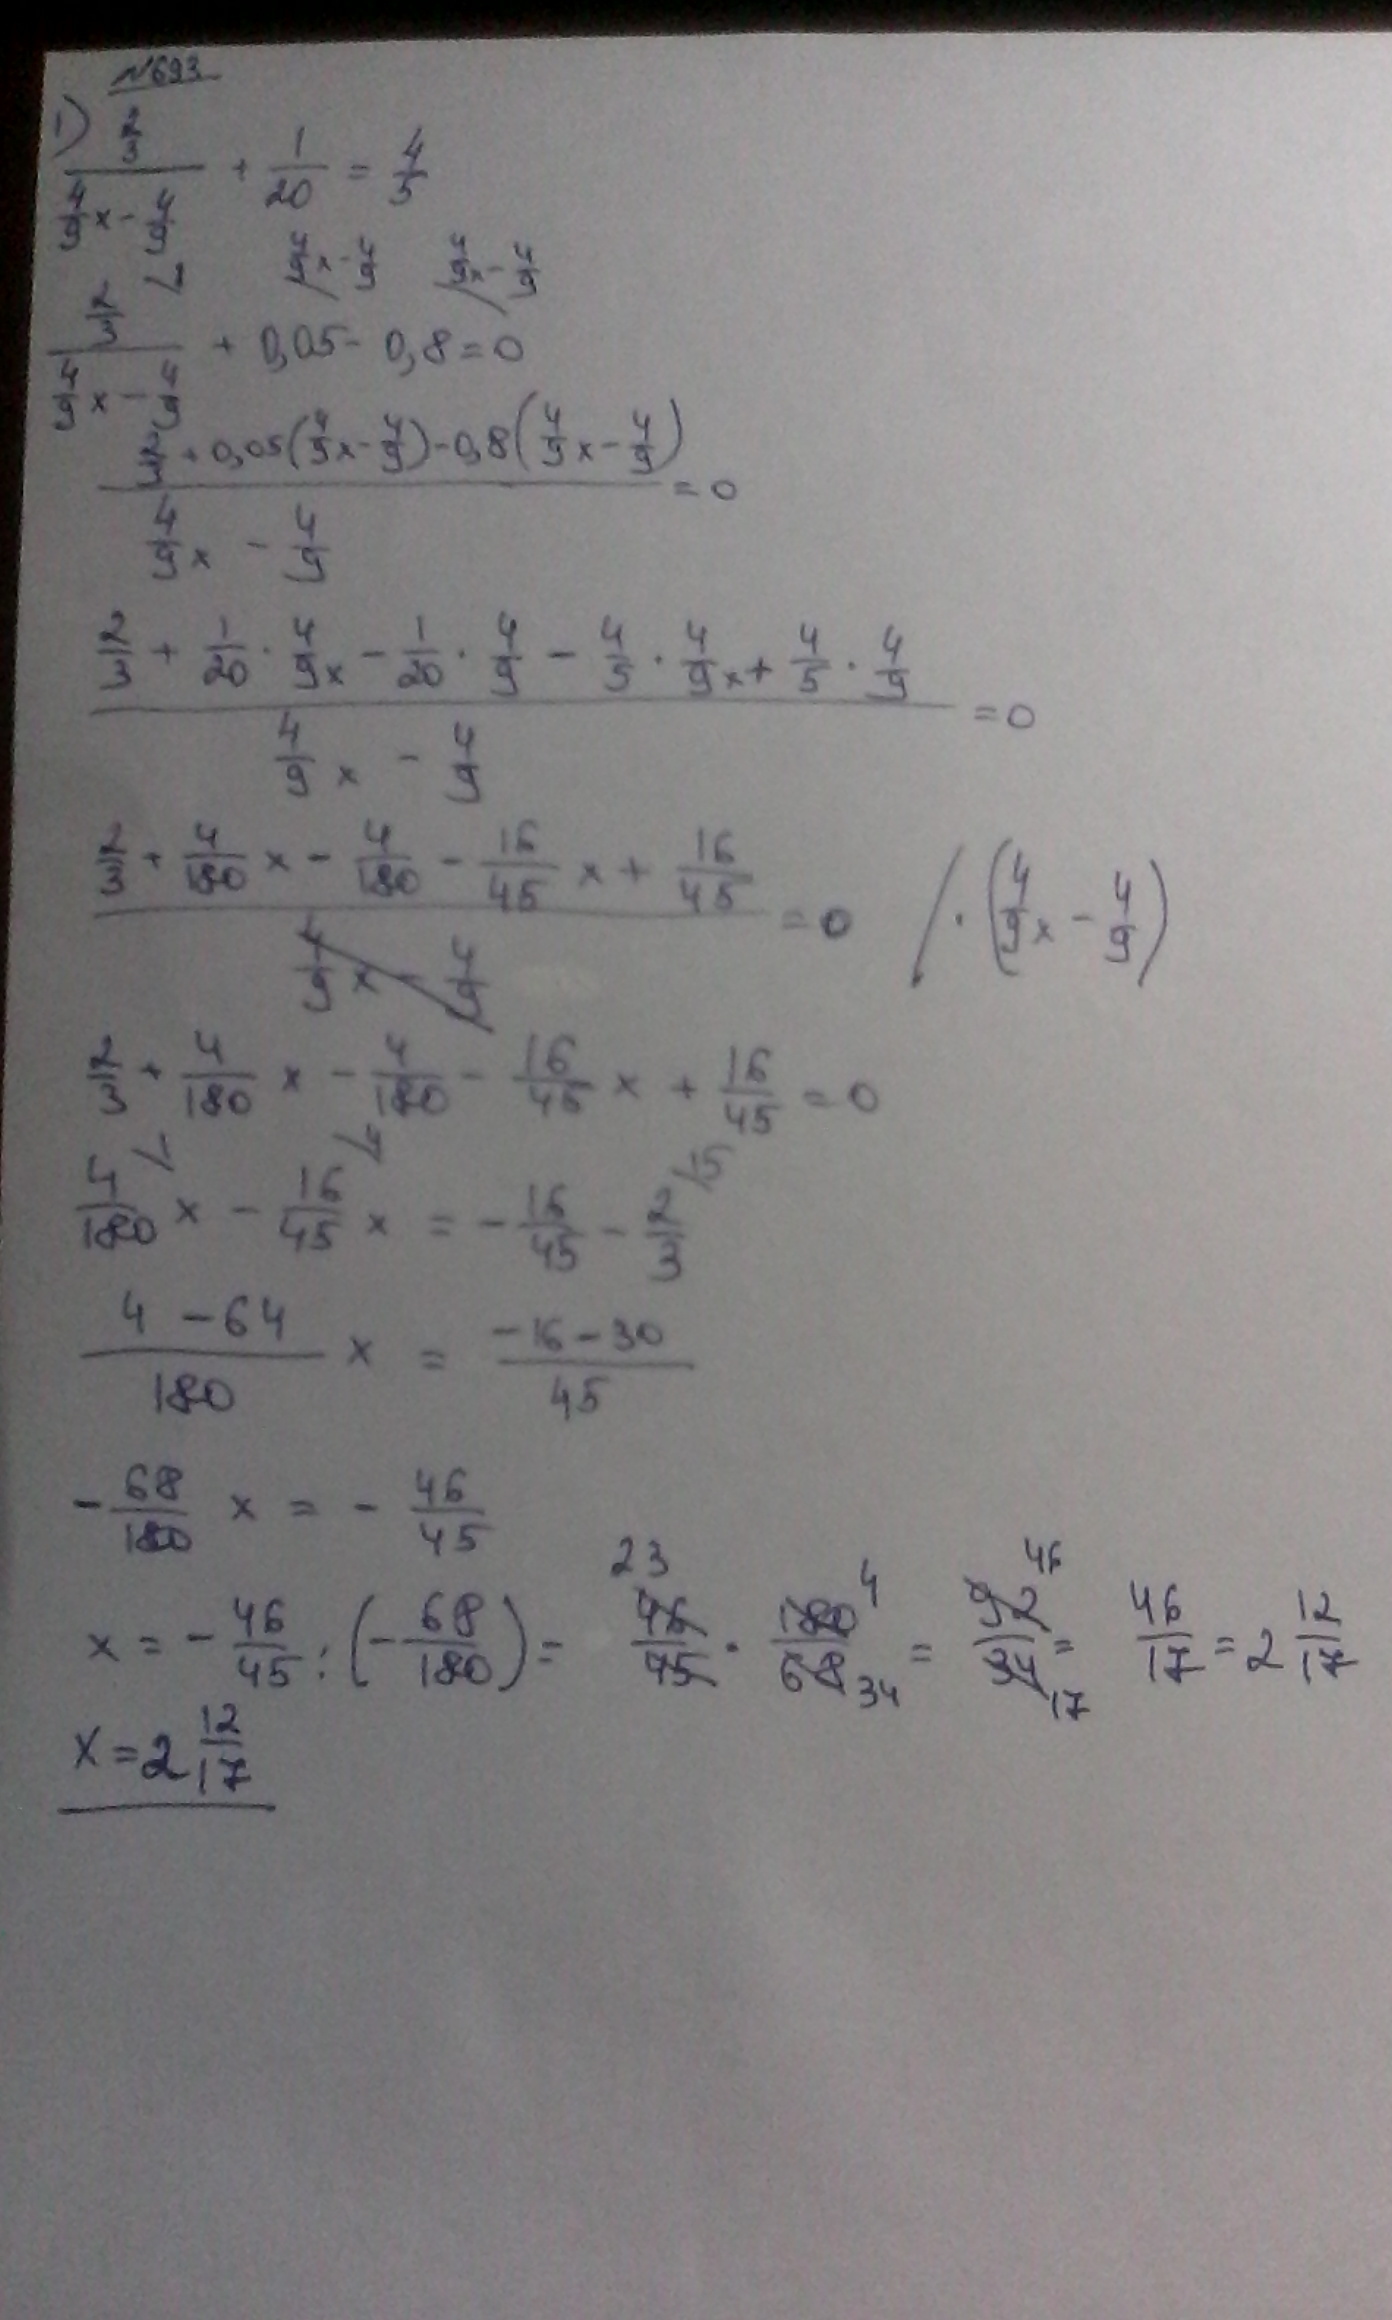 №693
1) (2/3)/(4/9 x - 4/9) + 1/20 = 4/5
4/9 x - 4/9   4/9 x - 4/9
(2/3)/(4/9 x - 4/9) + 0,05 - 0,8 = 0
(2/3 + 0,05(4/9 x - 4/9) - 0,8(4/9 x - 4/9))/(4/9 x - 4/9) = 0
(2/3 + 1/20 · 4/9 x - 1/20 · 4/9 - 4/5 · 4/9 x + 4/5 · 4/9)/(4/9 x - 4/9) = 0
(2/3 + 4/180 x - 4/180 - 16/45 x + 16/45)/(4/9 x - 4/9) = 0 / · (4/9 x - 4/9)
2/3 + 4/180 x - 4/180 - 16/45 x + 16/45 = 0
4/180 x - 16/45 x = - 16/45 - 2/3 /15
(4 - 64)/180 x = (-16 - 30)/45
- 68/180 x = - 46/45
x = - 46/45 : (- 68/180) = 46/45 · 180/68 = 92/34 = 46/17 = 2 12/17
x = 2 12/17